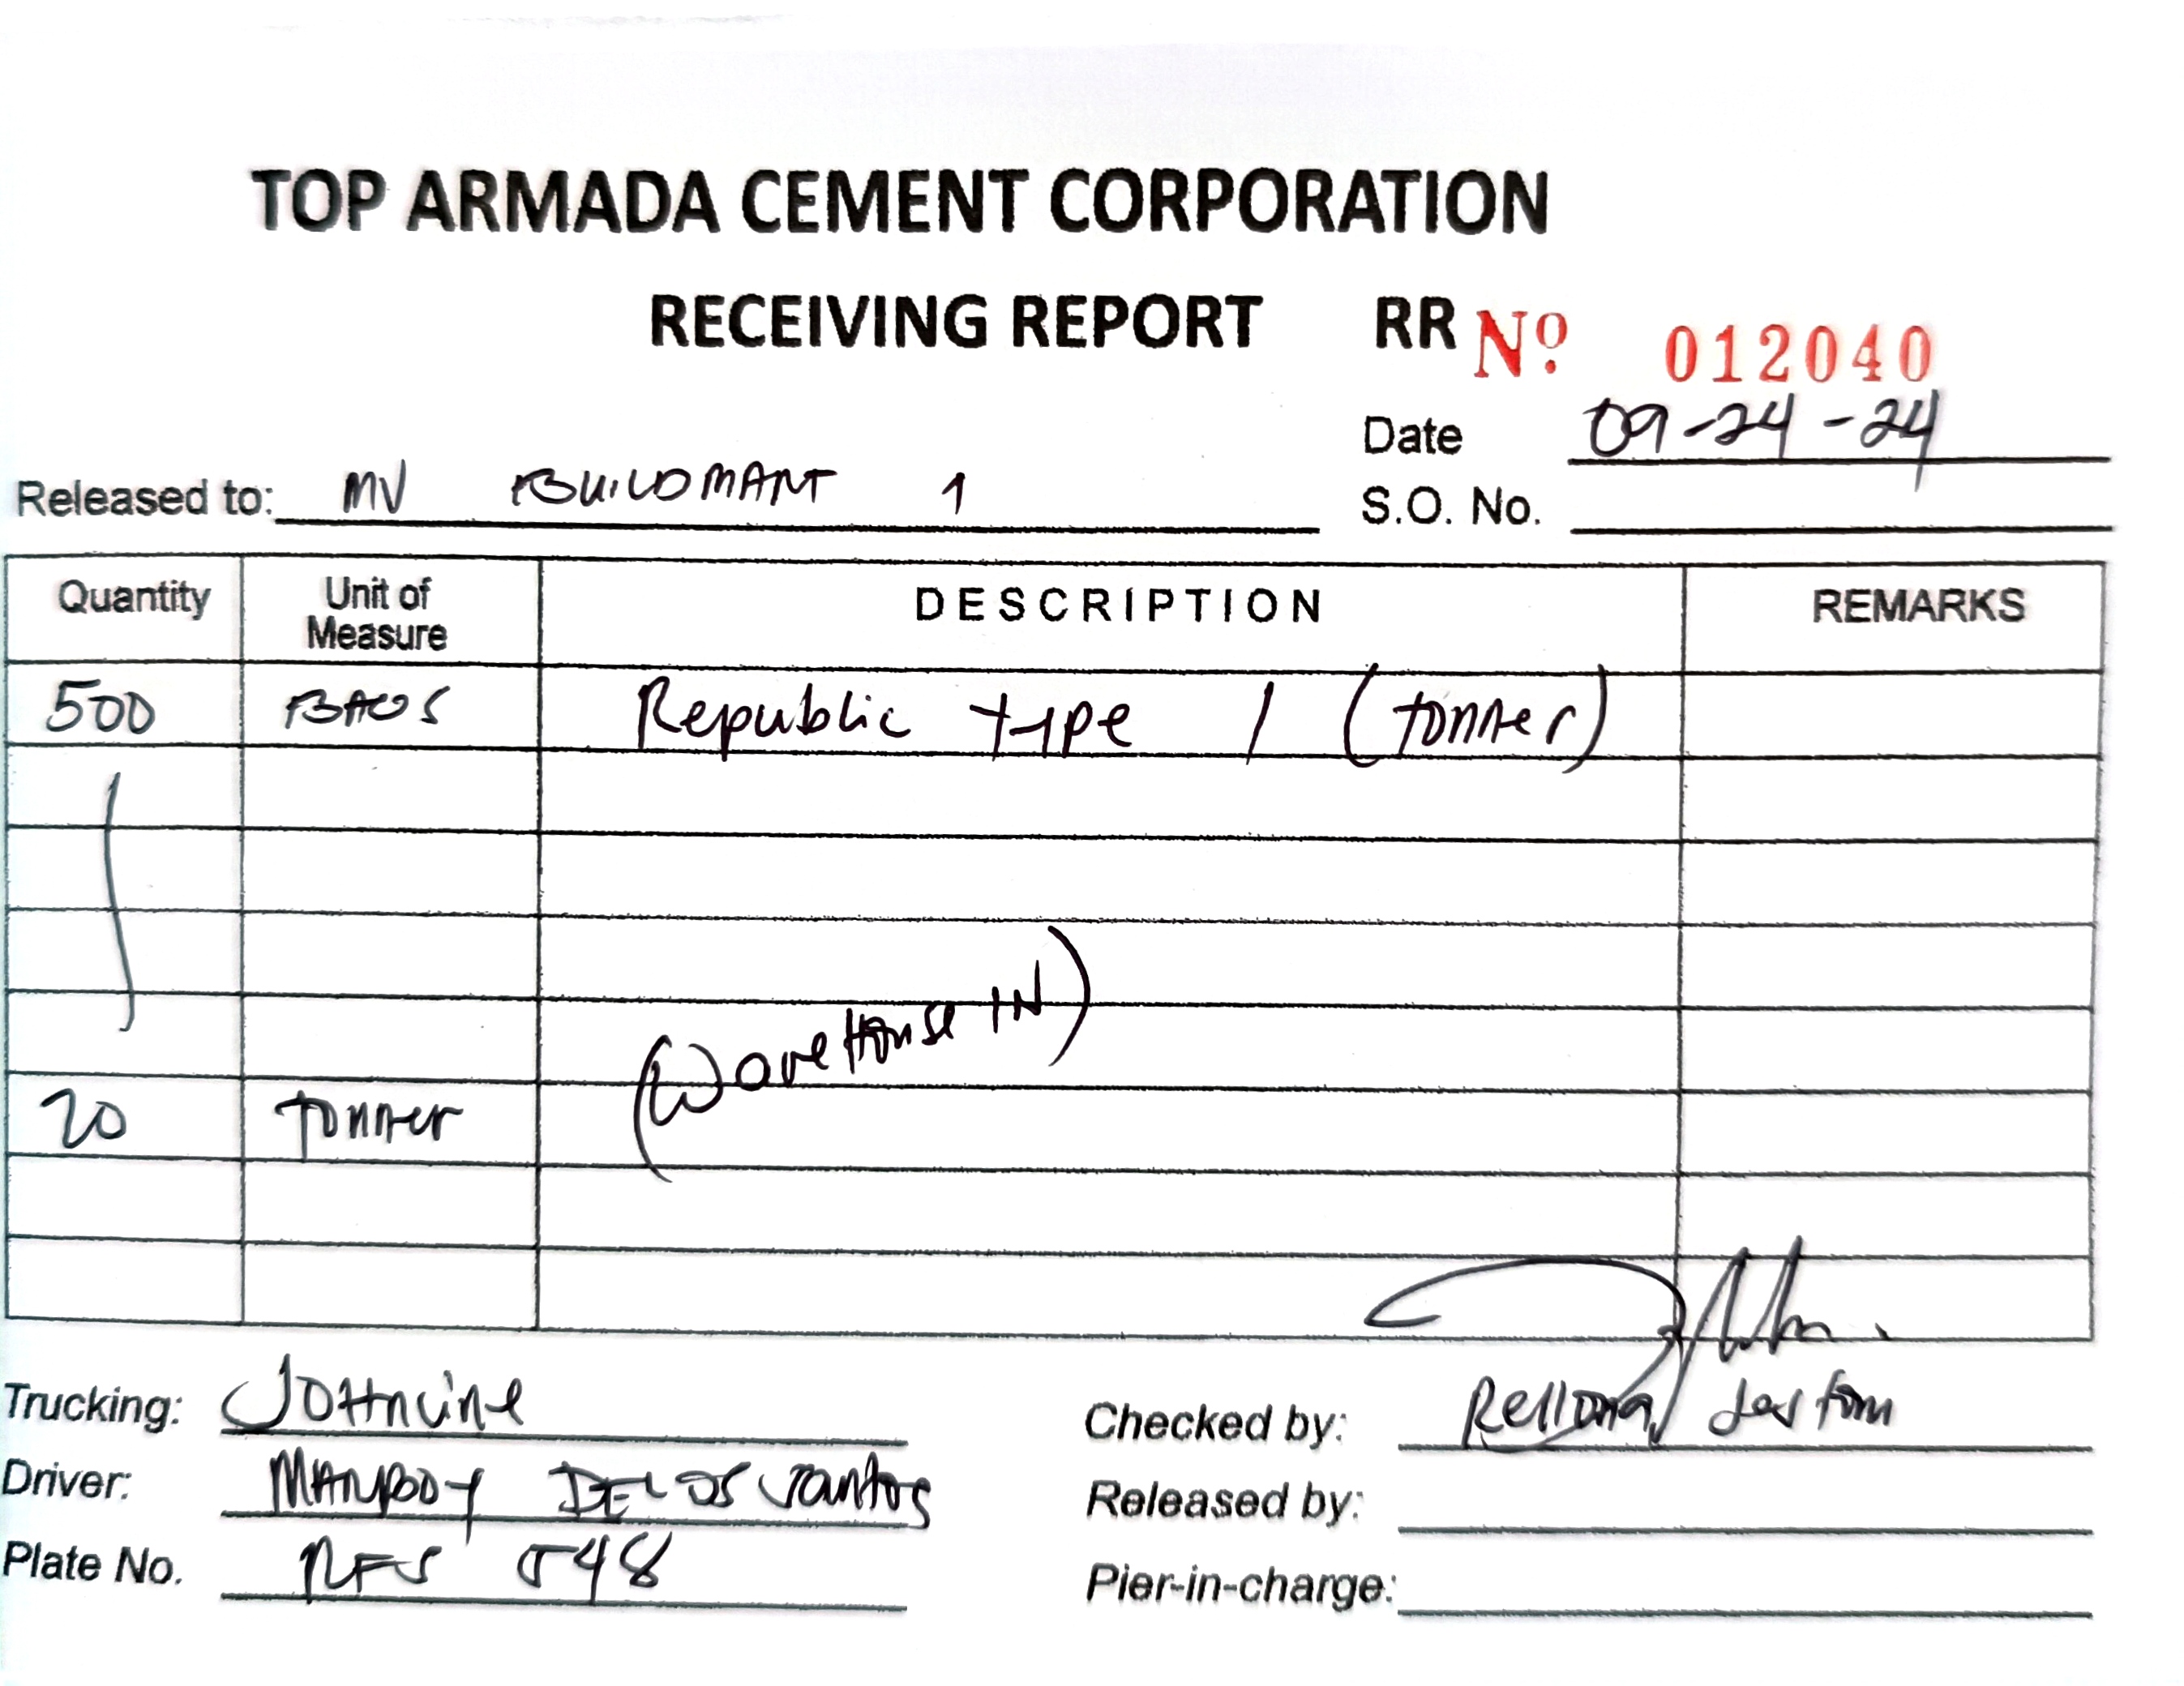 TOP ARMADA CEMENT CORPORATION
RECEIVING REPORT RR Nº 012040
Date 09-24-24
Released to: MV BUILDMART 1
S.O. No.
Quantity Unit of Measure DESCRIPTION REMARKS
500 BAGS Republic type 1 (tonner)
(WareHouse IN)
20 tonner
Trucking: JOHNCINE
Checked by:
Driver: MANBOY DELOS Santos
Released by:
Plate No. 548
Pier-in-charge: